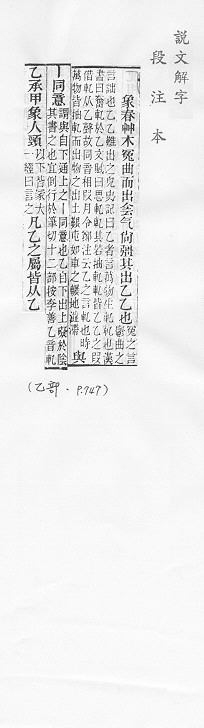 説文解字
段注本
象春艸木冤曲而出侌气尚彊其出乙乙也冤之言鬱曲之
言詘也乙乙難出之皃史記曰乙者言萬物生軋軋也漢
書曰奮軋於乙文賦曰思軋軋其若抽軋軋皆乙乙之叚
借軋从乙聲故同音相叚月令鄭注云乙之言軋也時
萬物皆抽軋而出物之出土艱屯如車之輾地澀滯與
丨同意謂與自下通上之丨同意也乙自下出上礙於陰
其書之也宜倒行於筆切十二部按李善乙音軋
乙承甲象人頸以下皆蒙大一經曰言之凡乙之屬皆从乙
(乙部 · P.747)